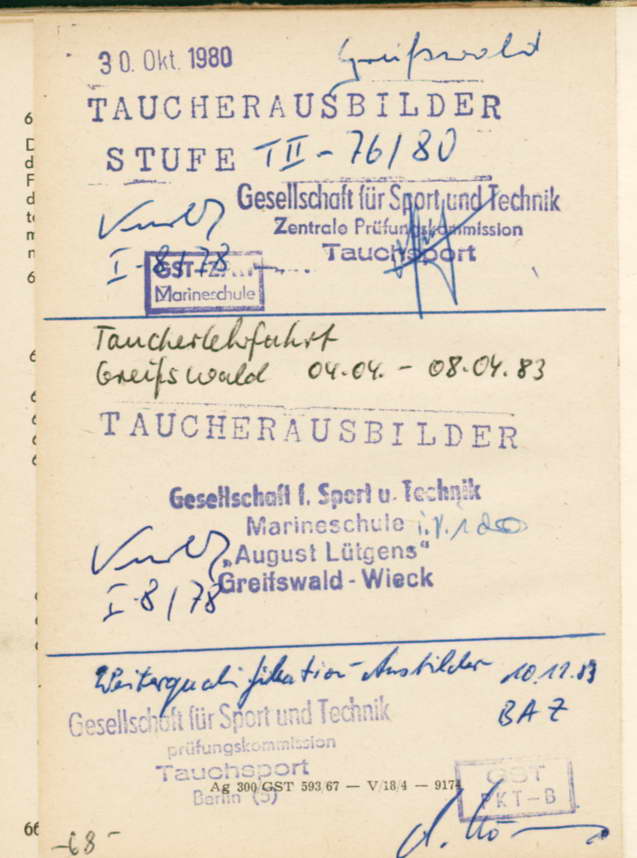 30. Okt. 1980 Greifswald
TAUCHERAUSBILDER
STUFE III - 76/80
Gesellschaft für Sport und Technik
Zentrale Prüfungskommission
Tauchsport
I-8/78
GST
Marineschule
Taucherlehrfahrt
Greifswald 04.04. - 08.04.83
TAUCHERAUSBILDER
Gesellschaft f. Sport u. Technik
Marineschule i.V.
„August Lütgens“
Greifswald - Wieck
I-8/78
Weiterqualifikation Ausbilder 10.12.83
BAZ
Gesellschaft für Sport und Technik
prüfungskommission
Tauchsport
Berlin (5)
Ag 300/GST 593/67 — V/18/4 — 9174
GST
PKT-B
66
-68-